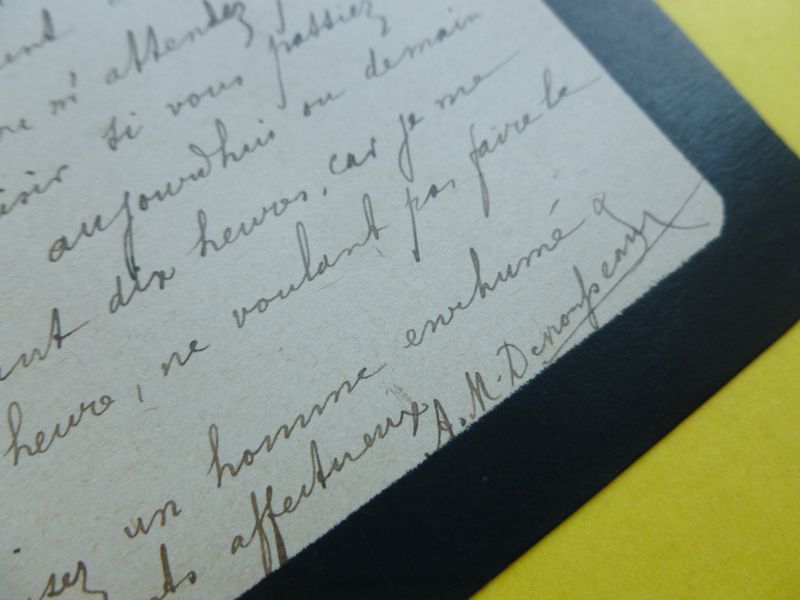 ne m'attendez
si vous passiez
aujourdhui ou demain
dix heures, car je me
heure, ne voulant pas faire le
un homme enrhumé &
affectueux
A. M. Desrousseaux